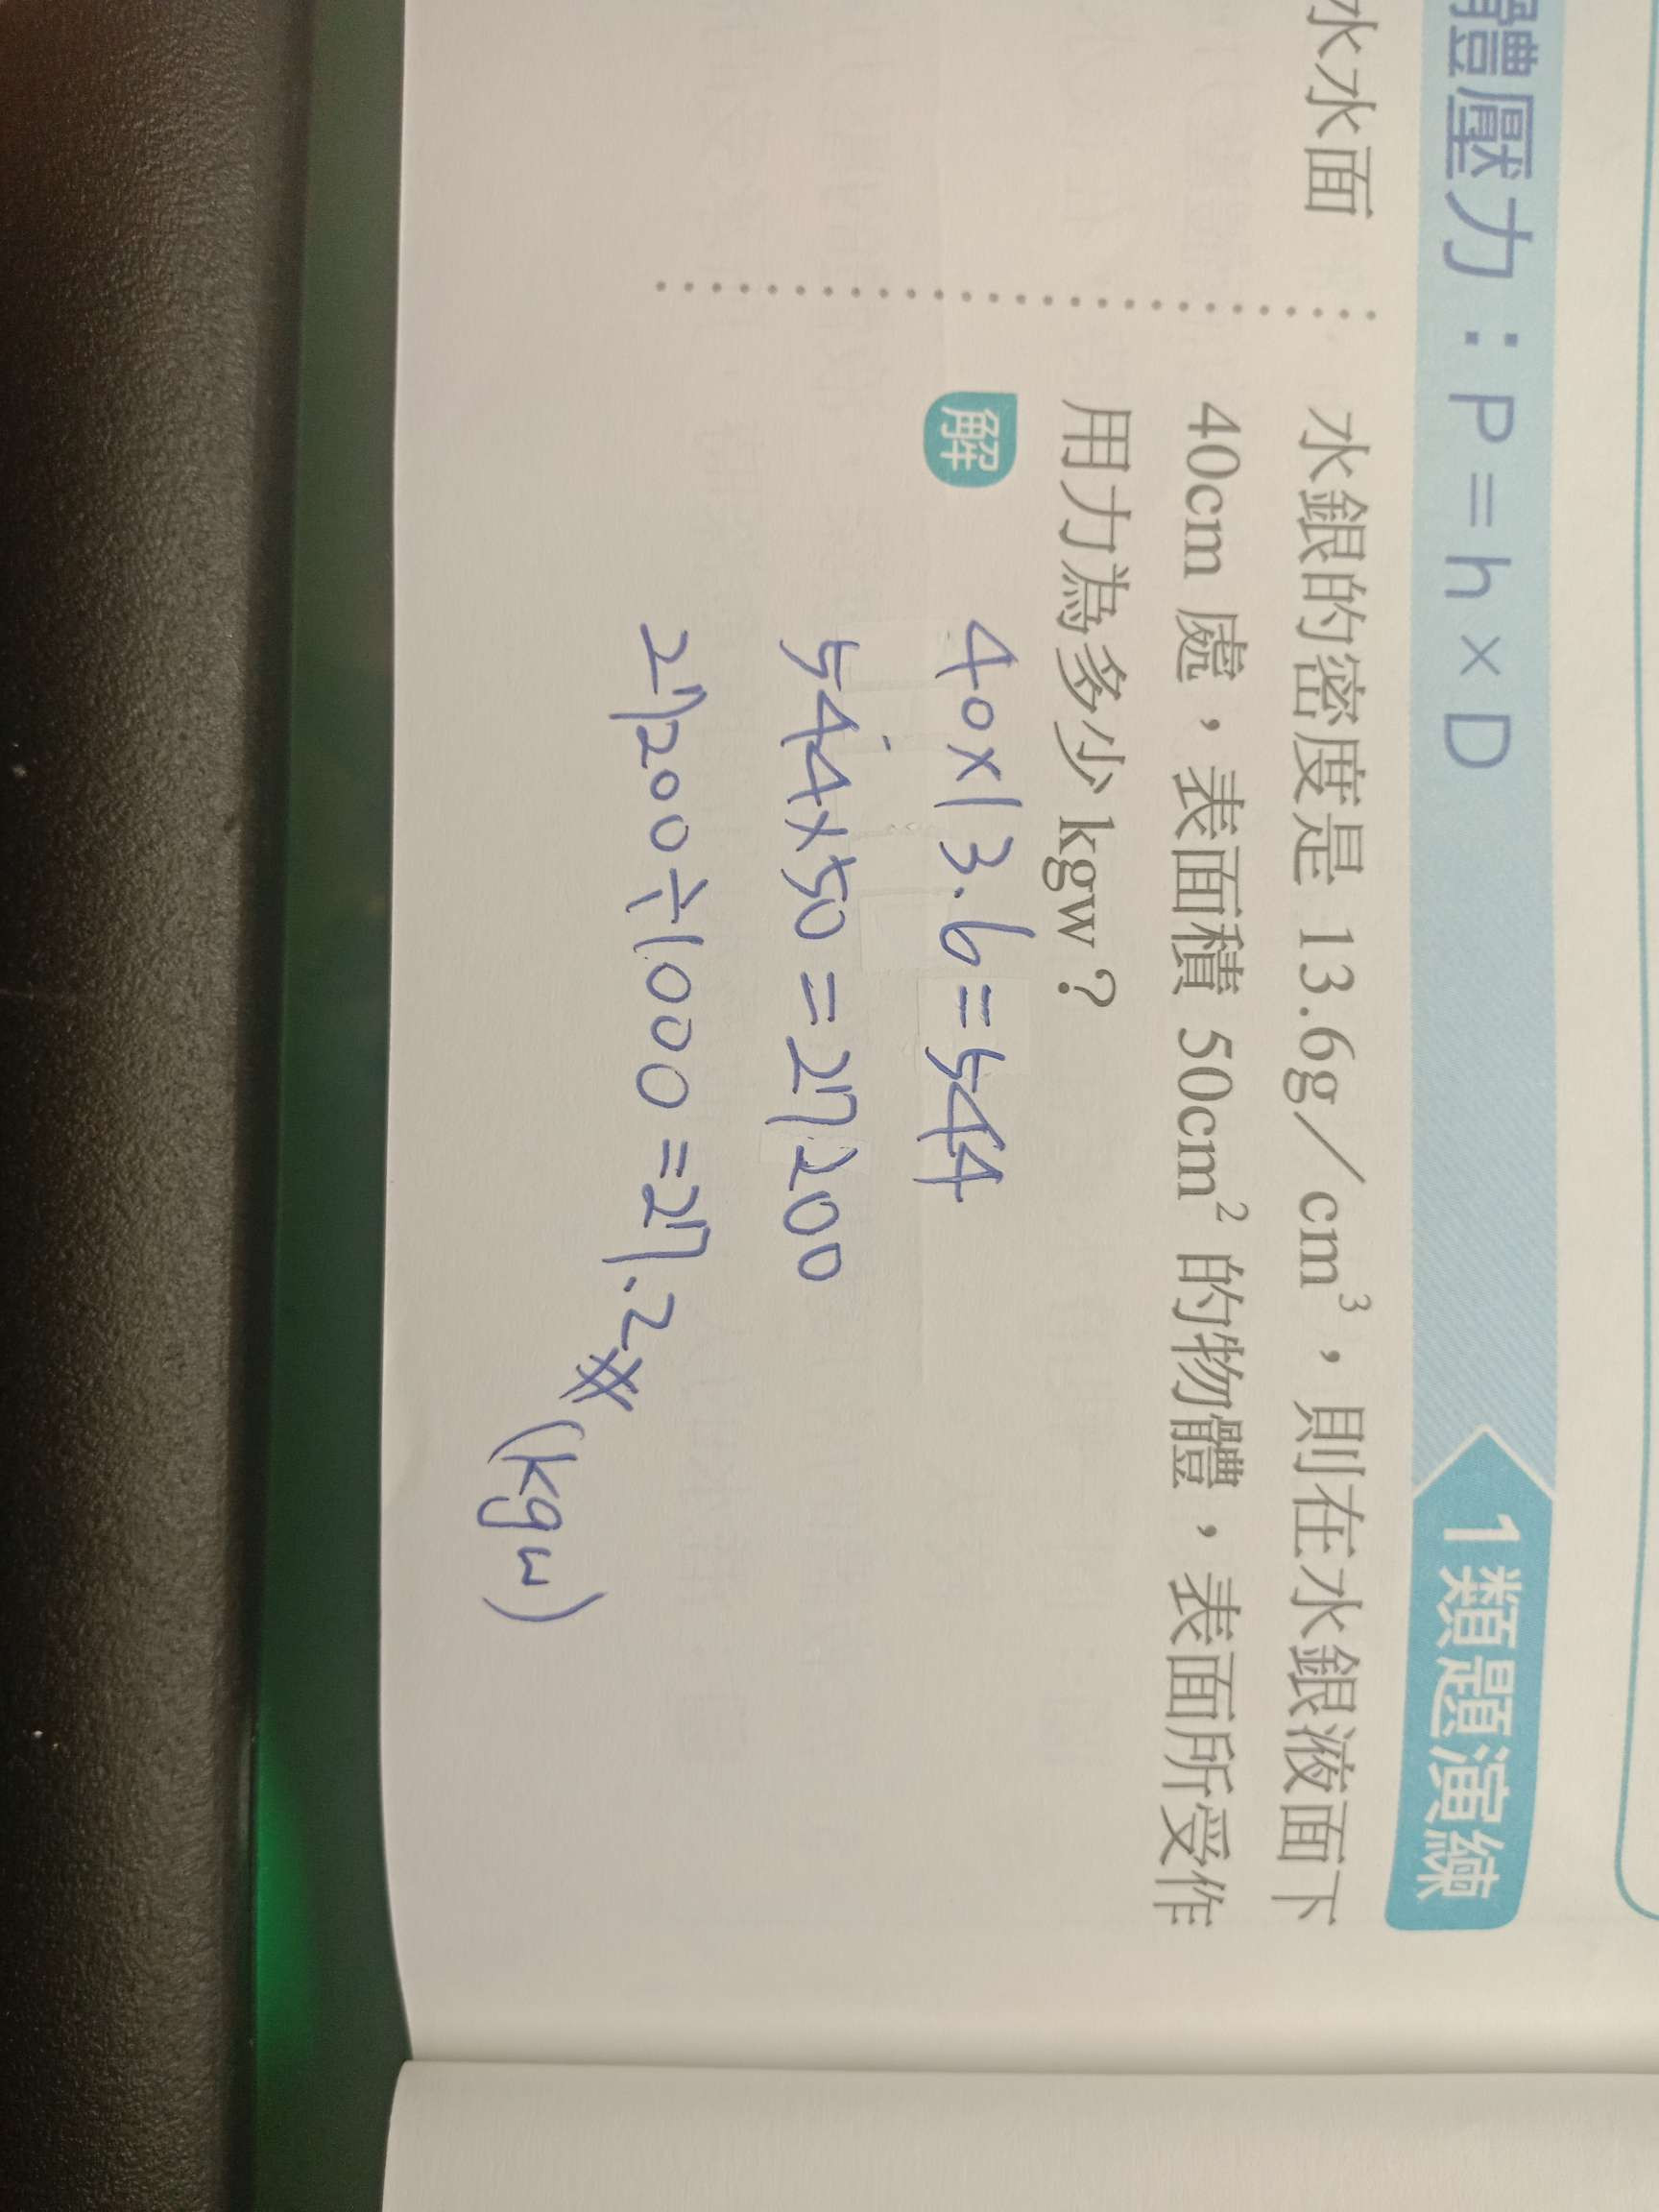 體壓力：P＝h×D
1 類題演練
水水面
水銀的密度是 13.6g／cm³，則在水銀液面下
40cm 處，表面積 50cm² 的物體，表面所受作
用力為多少 kgw？
解
40×13.6=544
544×50=27200
27200÷1000=27.2#
(kgw)